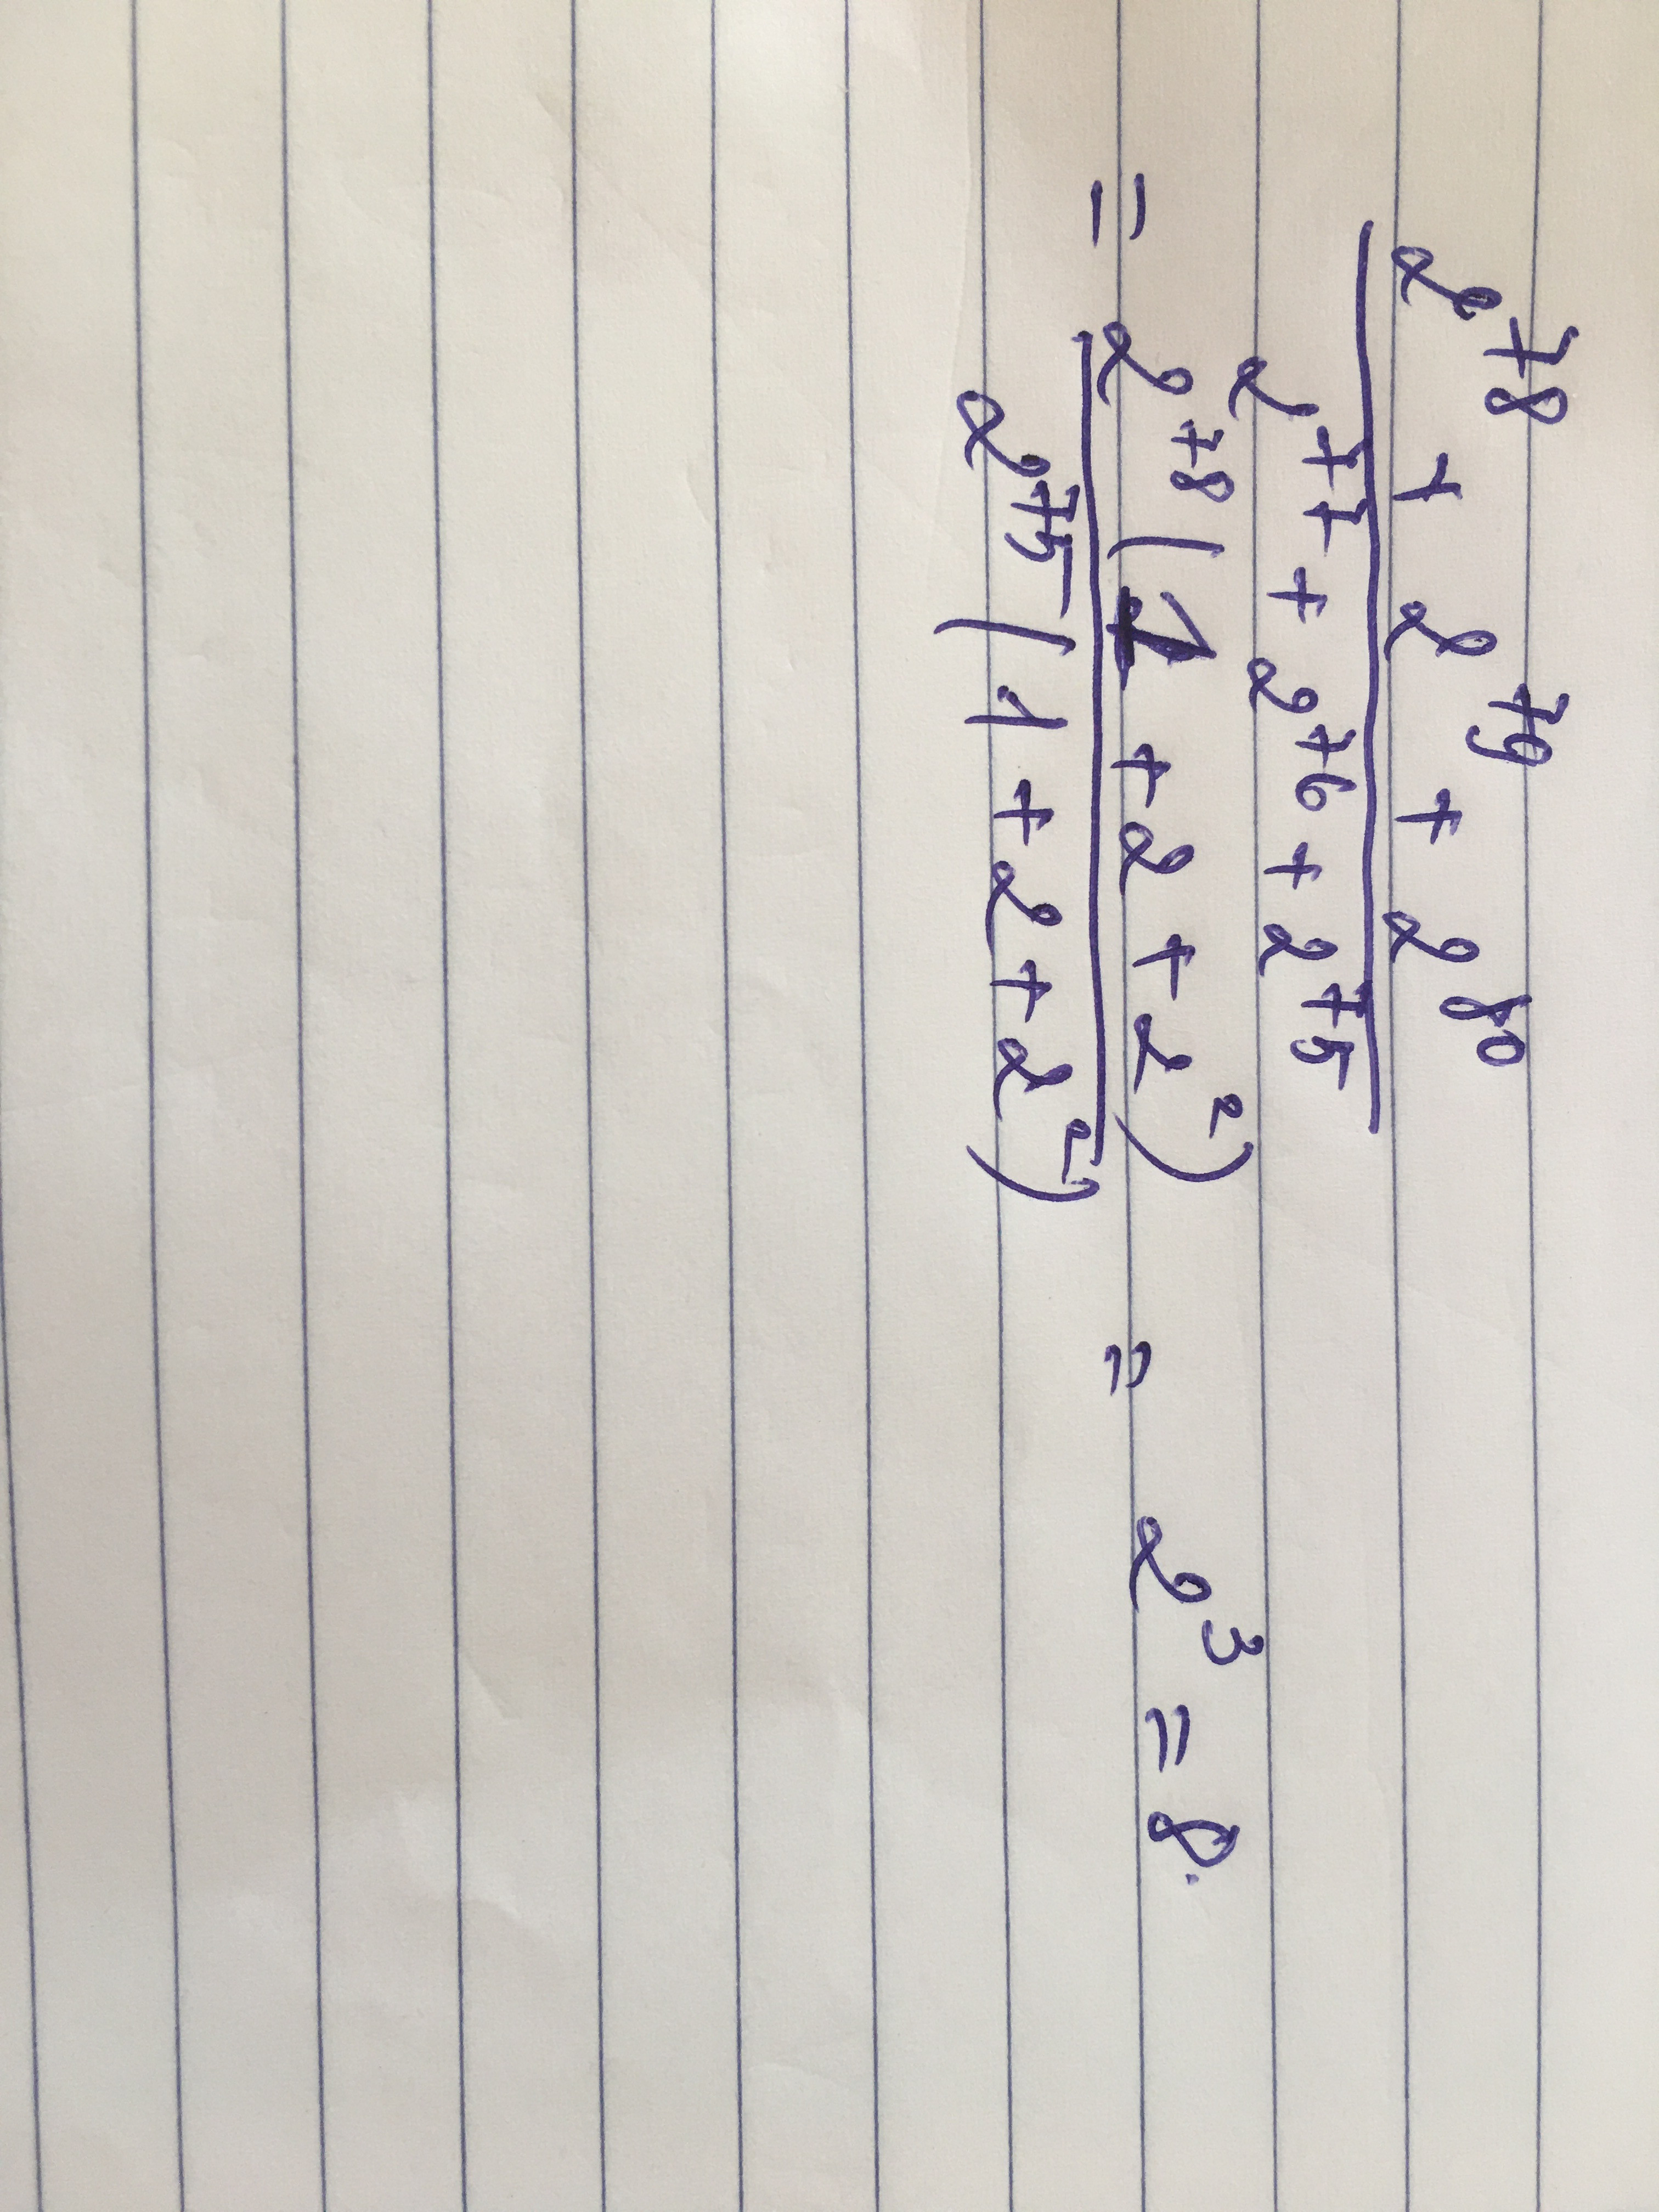 2^78 + 2^79 + 2^80
2^77 + 2^76 + 2^75
= 2^78 (1 + 2 + 2^2) = 2^3 = 8.
2^75 (1 + 2 + 2^2)